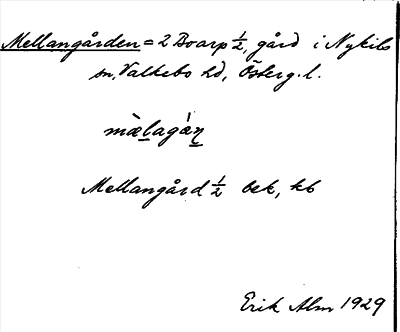 Mellangården = 2 Boarp 1/2, gård i Nykils
sn, Valkebo hd, Österg. l.
mæ̀lagáṉ
Mellangård 1/2 bek, kb
Erik Alm 1929